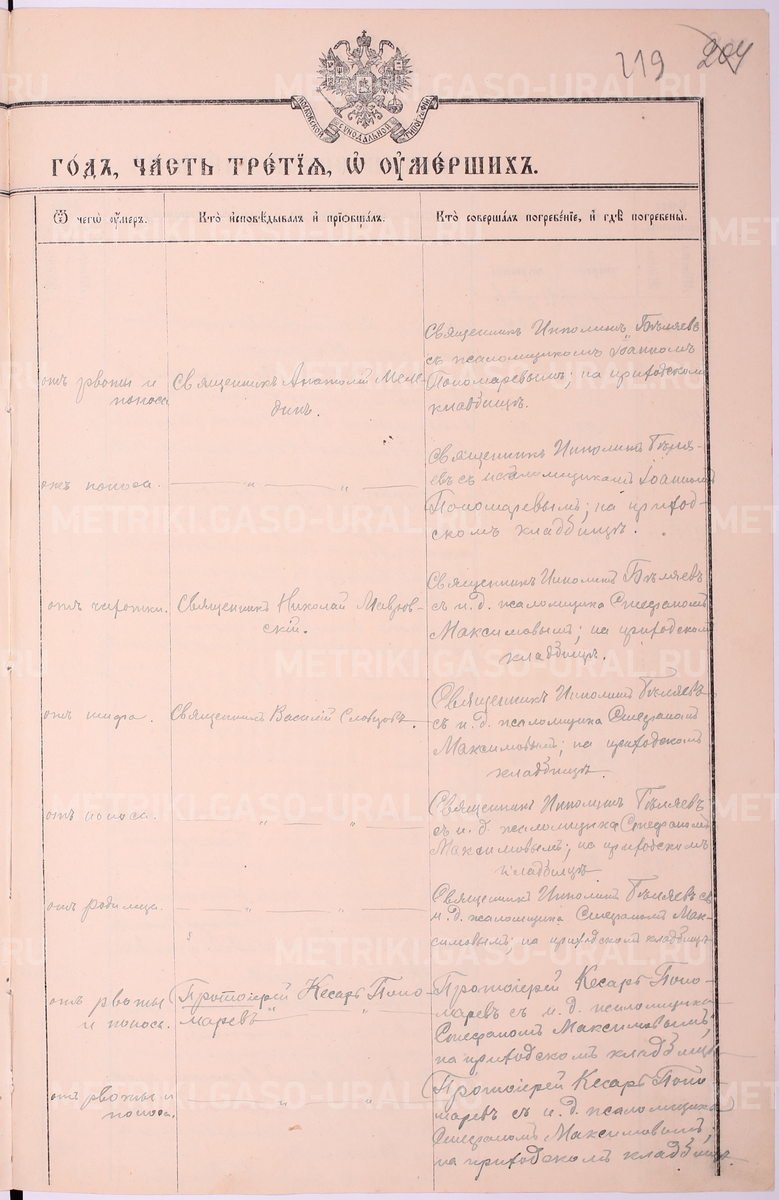 219 204
МОСКОВСКОЙ СѴНОДАЛЬНОЙ ТИПОГРАФІИ
ГО́ДЪ, ЧА́СТЬ ТРЕ́ТІѦ, Ѡ҆ ОУ҆МЕ́РШИХЪ.
Ѿ чегѡ̀ оу҆́меръ.
Кто̀ и҆сповѣ́дывалъ и҆ прїѡбща́лъ.
Кто̀ соверша́лъ погребе́нїе, и҆ гдѣ̀ погребены̀.
отъ рвоты и
поноса
Священникъ Анатолій Меле-
динъ.
Священникъ Ипполитъ Бѣляевъ
съ псаломщикомъ Іоанномъ
Пономаревымъ; на приходскомъ
кладбищѣ.
отъ поноса.
— " — " —
Священникъ Ипполитъ Бѣля-
евъ съ псаломщикомъ Іоанномъ
Пономаревымъ; на приход-
скомъ кладбищѣ.
отъ чахотки.
Священникъ Николай Мавров-
скій.
Священникъ Ипполитъ Бѣляевъ
съ и. д. псаломщика Стефаномъ
Максимовымъ; на приходскомъ
кладбищѣ.
отъ тифа.
Священникъ Василій Словцовъ.
Священникъ Ипполитъ Бѣляевъ
съ и. д. псаломщика Стефаномъ
Максимовымъ; на приходскомъ
кладбищѣ.
отъ поноса.
" — " —
Священникъ Ипполитъ Бѣляевъ
съ и. д. псаломщика Стефаномъ
Максимовымъ; на приходскомъ
кладбищѣ
отъ родимца.
— " — " —
Священникъ Ипполитъ Бѣляевъ съ
и. д. псаломщика Стефаномъ Мак-
симовымъ; на приходскомъ кладбищѣ
отъ рвоты
и поноса.
Протоіерей Кесарь Поно-
маревъ
Протоіерей Кесарь Поно-
маревъ съ и. д. псаломщика
Стефаномъ Максимовымъ;
на приходскомъ кладбищѣ
отъ рвоты и
поноса.
— " — "
Протоіерей Кесарь Поно-
маревъ съ и. д. псаломщика
Стефаномъ Максимовымъ;
на приходскомъ кладбищѣ.
METRIKI.GASO-URAL.RU